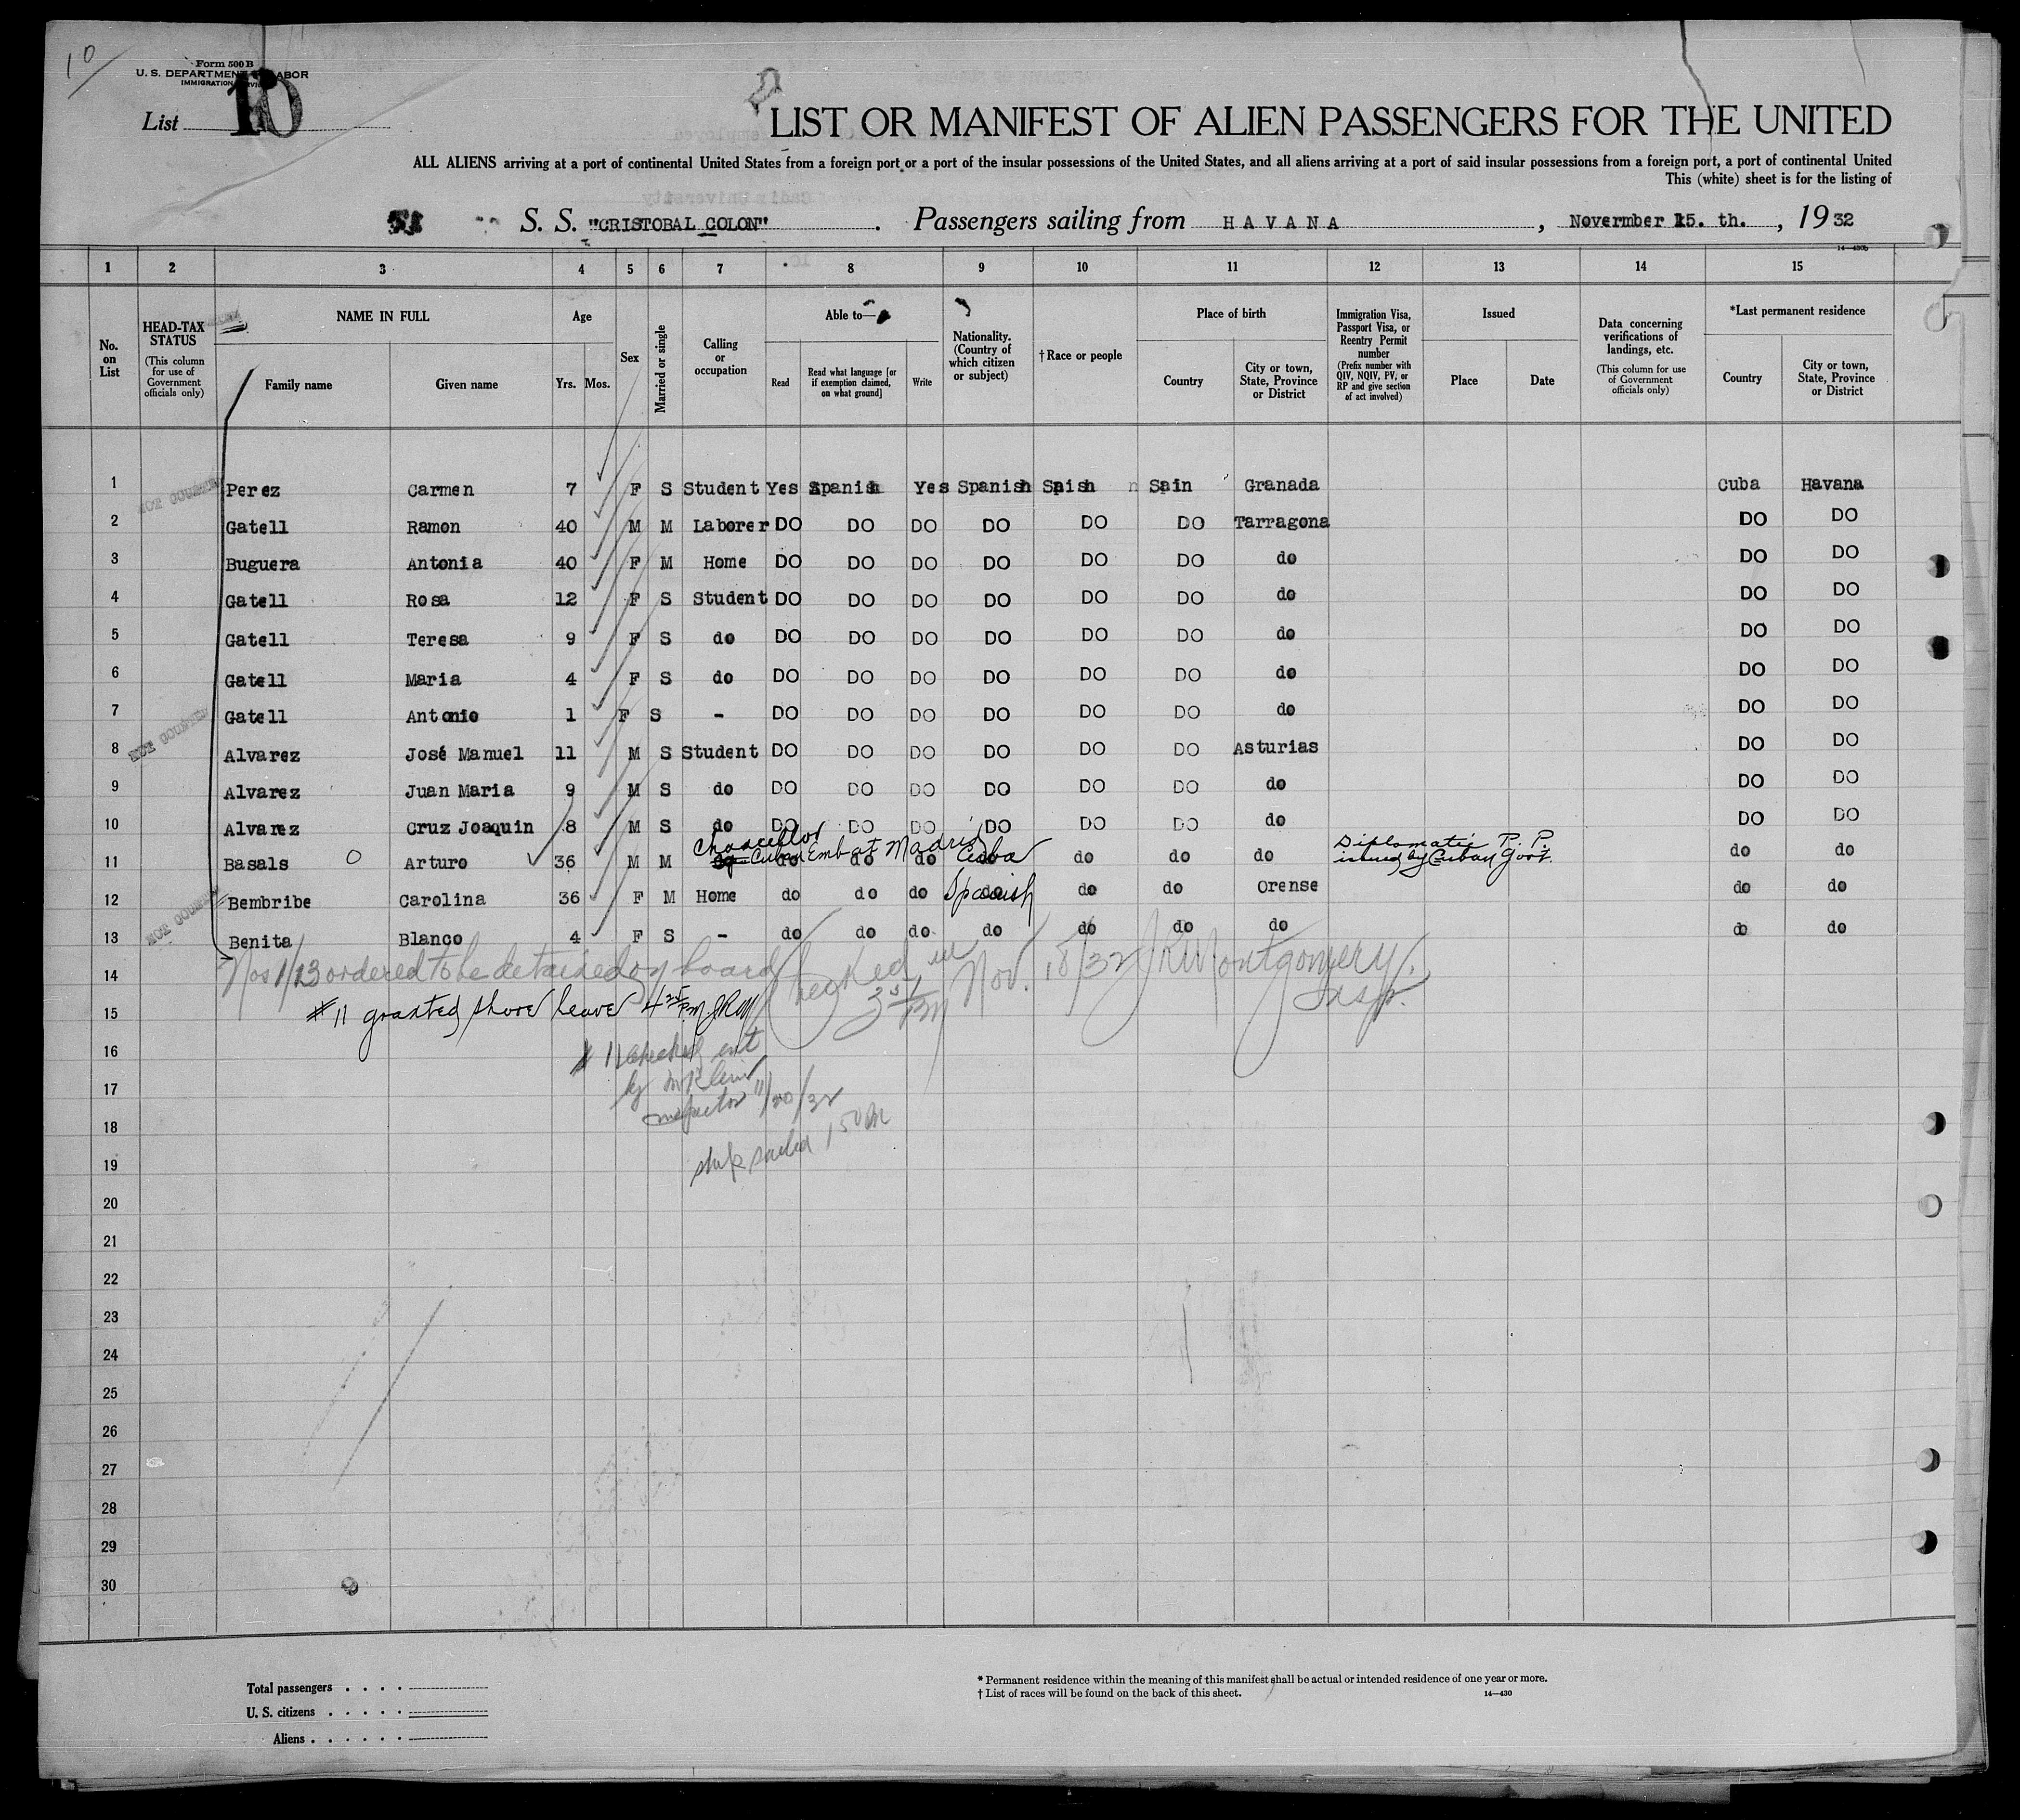 10
Form 500 B
U. S. DEPARTMENT OF LABOR
IMMIGRATION SERVICE
List 10
LIST OR MANIFEST OF ALIEN PASSENGERS FOR THE UNITED
ALL ALIENS arriving at a port of continental United States from a foreign port or a port of the insular possessions of the United States, and all aliens arriving at a port of said insular possessions from a foreign port, a port of continental United
This (white) sheet is for the listing of
S. S. "CRISTOBAL COLON". Passengers sailing from HAVANA, Novermber 15. th., 1932
14—430b
1 2 3 4 5 6 7 8 9 10 11 12 13 14 15
No. on List
HEAD-TAX STATUS (This column for use of Government officials only)
NAME IN FULL
Family name Given name
Age
Yrs. Mos.
Sex
Married or single
Calling or occupation
Able to—
Read
Read what language [or if exemption claimed, on what ground]
Write
Nationality. (Country of which citizen or subject)
† Race or people
Place of birth
Country
City or town, State, Province or District
Immigration Visa, Passport Visa, or Reentry Permit number (Prefix number with QIV, NQIV, PV, or RP and give section of act involved)
Issued
Place Date
Data concerning verifications of landings, etc. (This column for use of Government officials only)
*Last permanent residence
Country
City or town, State, Province or District
1 NOT COUNTED Perez Carmen 7 F S Student Yes Spanish Yes Spanish Spish Spin Granada Cuba Havana
2 Gatell Ramon 40 M M Laborer DO DO DO DO DO DO Tarragona DO DO
3 Buguera Antonia 40 F M Home DO DO DO DO DO DO do DO DO
4 Gatell Rosa 12 F S Student DO DO DO DO DO DO do DO DO
5 Gatell Teresa 9 F S do DO DO DO DO DO DO do DO DO
6 Gatell Maria 4 F S do DO DO DO DO DO DO do DO DO
7 Gatell Antonio 1 F S - DO DO DO DO DO DO do DO DO
8 NOT COUNTED Alvarez José Manuel 11 M S Student DO DO DO DO DO DO Asturias DO DO
9 Alvarez Juan Maria 9 M S do DO DO DO DO DO DO do DO DO
10 Alvarez Cruz Joaquin 8 M S do DO DO DO DO DO DO do DO DO
11 Basals Arturo 36 M M Chancellor Cuban Emb at Madrid do do do Cuba do do do Diplomatic P. P. issued by Cuban Govt. do do
12 NOT COUNTED Bembribe Carolina 36 F M Home do do do Spanish do do Orense do do
13 Benita Blanco 4 F S - do do do do do do do do do
14 Nos 1/13 ordered to be detained on board Checked in Nov. 18/32 JR Montgomery, Insp.
15 #11 granted shore leave 4 25 PM JRM
16 # 11 checked out
17 by
inspector 11/20/32
18
19 ship sailed 1 50
20
21
22
23
24
25
26
27
28
29
30
Total passengers . . . .
U. S. citizens . . . . .
Aliens . . . . . .
* Permanent residence within the meaning of this manifest shall be actual or intended residence of one year or more.
† List of races will be found on the back of this sheet.
14—430